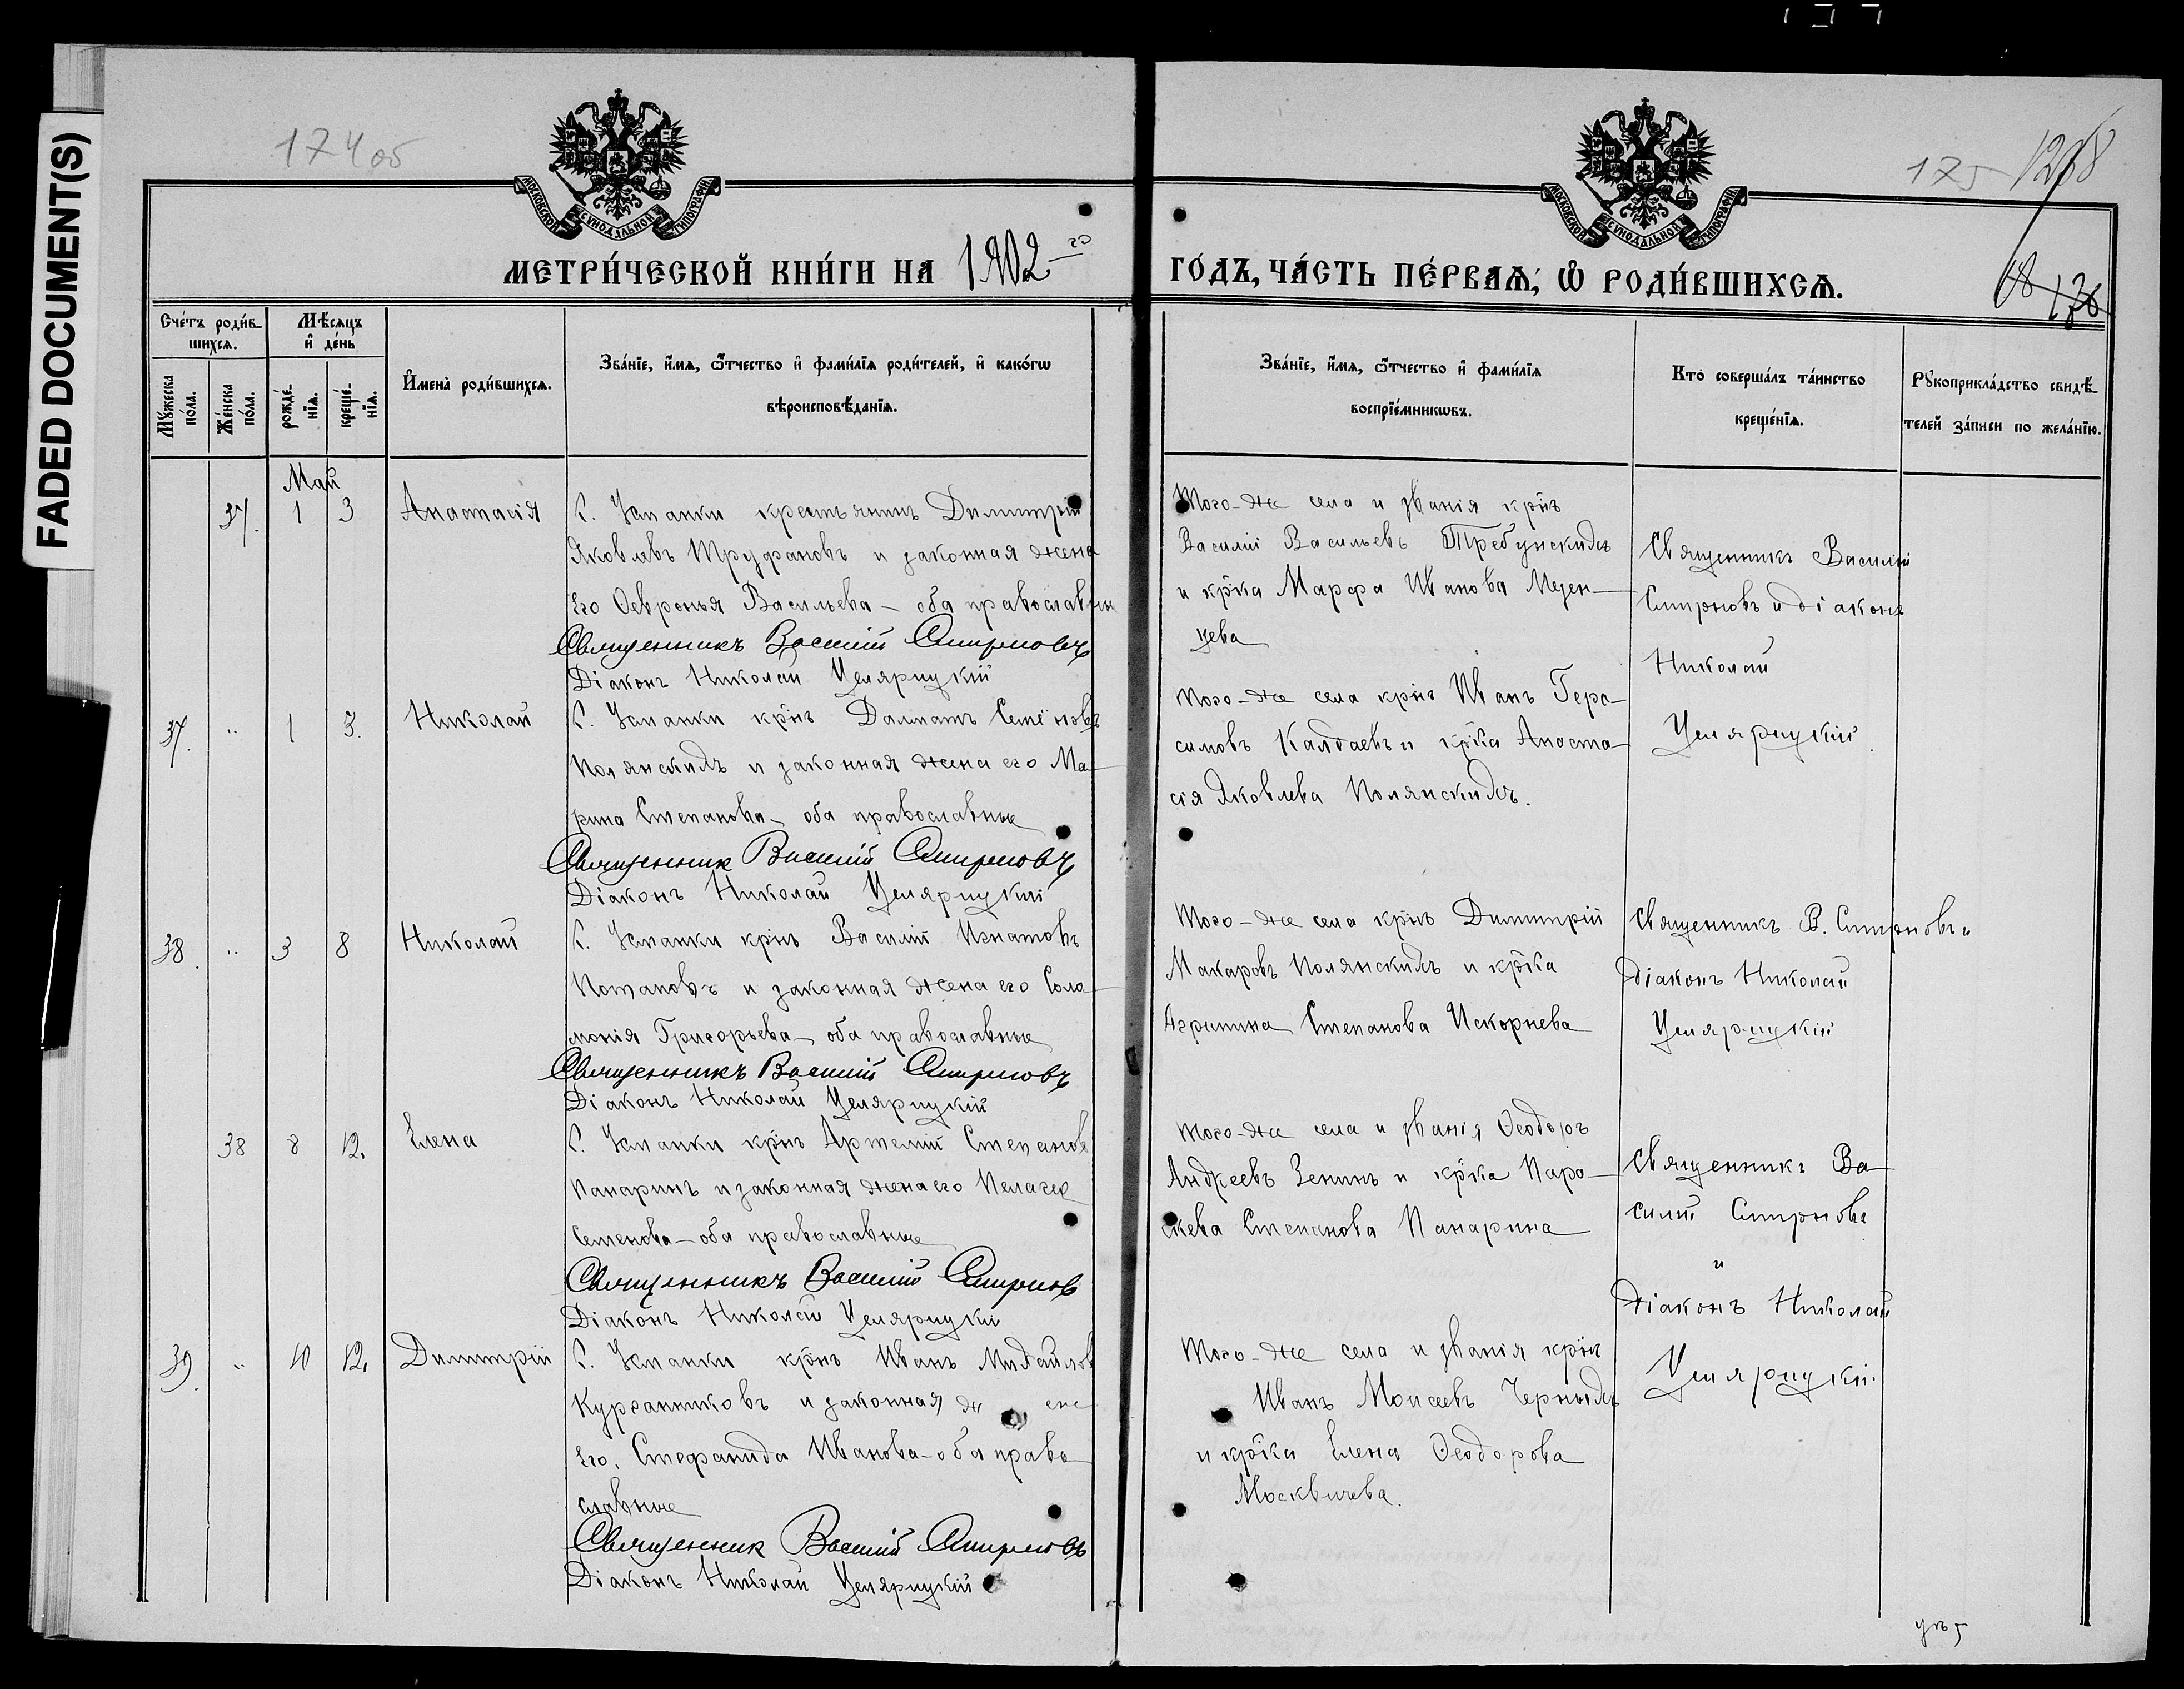 FADED DOCUMENT(S)
174 об
175 1268
МОСКОВСКОЙ СѴНОДАЛЬНОЙ ТИПОГРАФІИ
МОСКОВСКОЙ СѴНОДАЛЬНОЙ ТИПОГРАФІИ
МЕТРИ́ЧЕСКОЙ КНИ́ГИ НА 1902-го
ГО́ДЪ, ЧА́СТЬ ПЕ́РВАѦ, Ѡ҆ РОДИ́ВШИХСѦ.
176
Сче́тъ роди́в-
шихсѧ.
Мѣ́сѧцъ
и҆ де́нь
Мꙋ́жеска по́ла.
Же́нска по́ла.
рожде́-нїѧ.
креще́-нїѧ.
И҆мена̀ роди́вшихсѧ.
Зва́нїе, и҆́мѧ, ѻ҆́тчество и҆ фами́лїѧ роди́телей, и҆ како́гѡ
вѣроисповѣ́данїѧ.
Зва́нїе, и҆́мѧ, ѻ҆́тчество и҆ фами́лїѧ
воспрїе́мникѡвъ.
Кто̀ соверша́лъ та́инство
креще́нїѧ.
Рꙋкоприкла́дство свидѣ́-
телей за́писи по жела́нїю.
Май
37. 1 3 Анастасія
С. Усманки крестьянинъ Димитрій
Яковлевъ Труфановъ и законная жена
Его Ѳевронья Васильева — оба православны
Священникъ Василій Смирновъ
Діаконъ Николай Целярицкій
Того-же села и званія кр̃нъ
Василій Васильевъ Требунскихъ
и кр̃ка Марфа Иванова Мезен-
цева
Священникъ Василій
Смирновъ и діаконъ
Николай
Целярицкій
37. " 1 3. Николай
С. Усманки кр̃нъ Далматъ Семёновъ
Полянскихъ и законная жена его Ма-
рина Степанова — оба православные
Священник Василій Смирновъ
Діаконъ Николай Целярицкій
Того-же села кр̃нъ Иванъ Гера-
симовъ Калдаевъ и кр̃ка Анаста-
сія Яковлева Полянскихъ.
38. " 3 8 Николай
С. Усманки кр̃нъ Василій Игнатовъ
Потаповъ и законная жена его Соло-
монія Григорьева — оба православные
Священникъ Василій Смирновъ
Діаконъ Николай Целярицкій
Того-же села кр̃нъ Димитрій
Макаровъ Полянскихъ и кр̃ка
Агрипина Степанова Искорнева
Священникъ В. Смирновъ и
Діаконъ Николай
Целярицкій
38 8 12. Елена
С. Усманки кр̃нъ Артемій Степановъ
Панаринъ и законная жена его Пелагея
Семенова — оба православные
Священникъ Василій Смирнов
Діаконъ Николай Целярицкій
Того-же села и званія Ѳеодоръ
Андреевъ Зенинъ и кр̃ка Парас-
кева Степанова Панарина
Священникъ Ва-
силій Смирновъ
и
Діаконъ Николай
Целярицкій.
39. " 10 12. Димитрій
С. Усманки кр̃нъ Иванъ Михайлов
Курсанниковъ и законная жена
Его. Стефанида Иванова — оба право-
славные
Священник Василій Смирновъ
Діаконъ Николай Целярицкій
Того-же села и званія кр̃нъ
Иванъ Моисеевъ Черныхъ
и кр̃ка Елена Ѳеодорова
Москвичева.